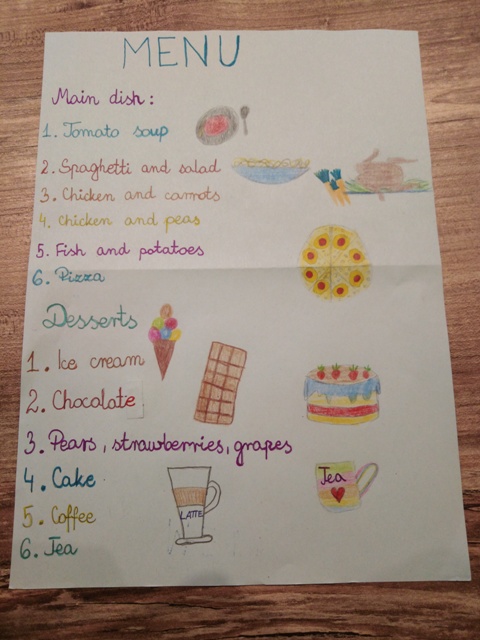 MENU
Main dish:
1. Tomato soup
2. Spaghetti and salad
3. Chicken and carrots
4. Chicken and peas
5. Fish and potatoes
6. Pizza
Desserts
1. Ice cream
2. Chocolate
3. Pears, strawberries, grapes
4. Cake
5. Coffee
6. Tea
LATTE
Tea